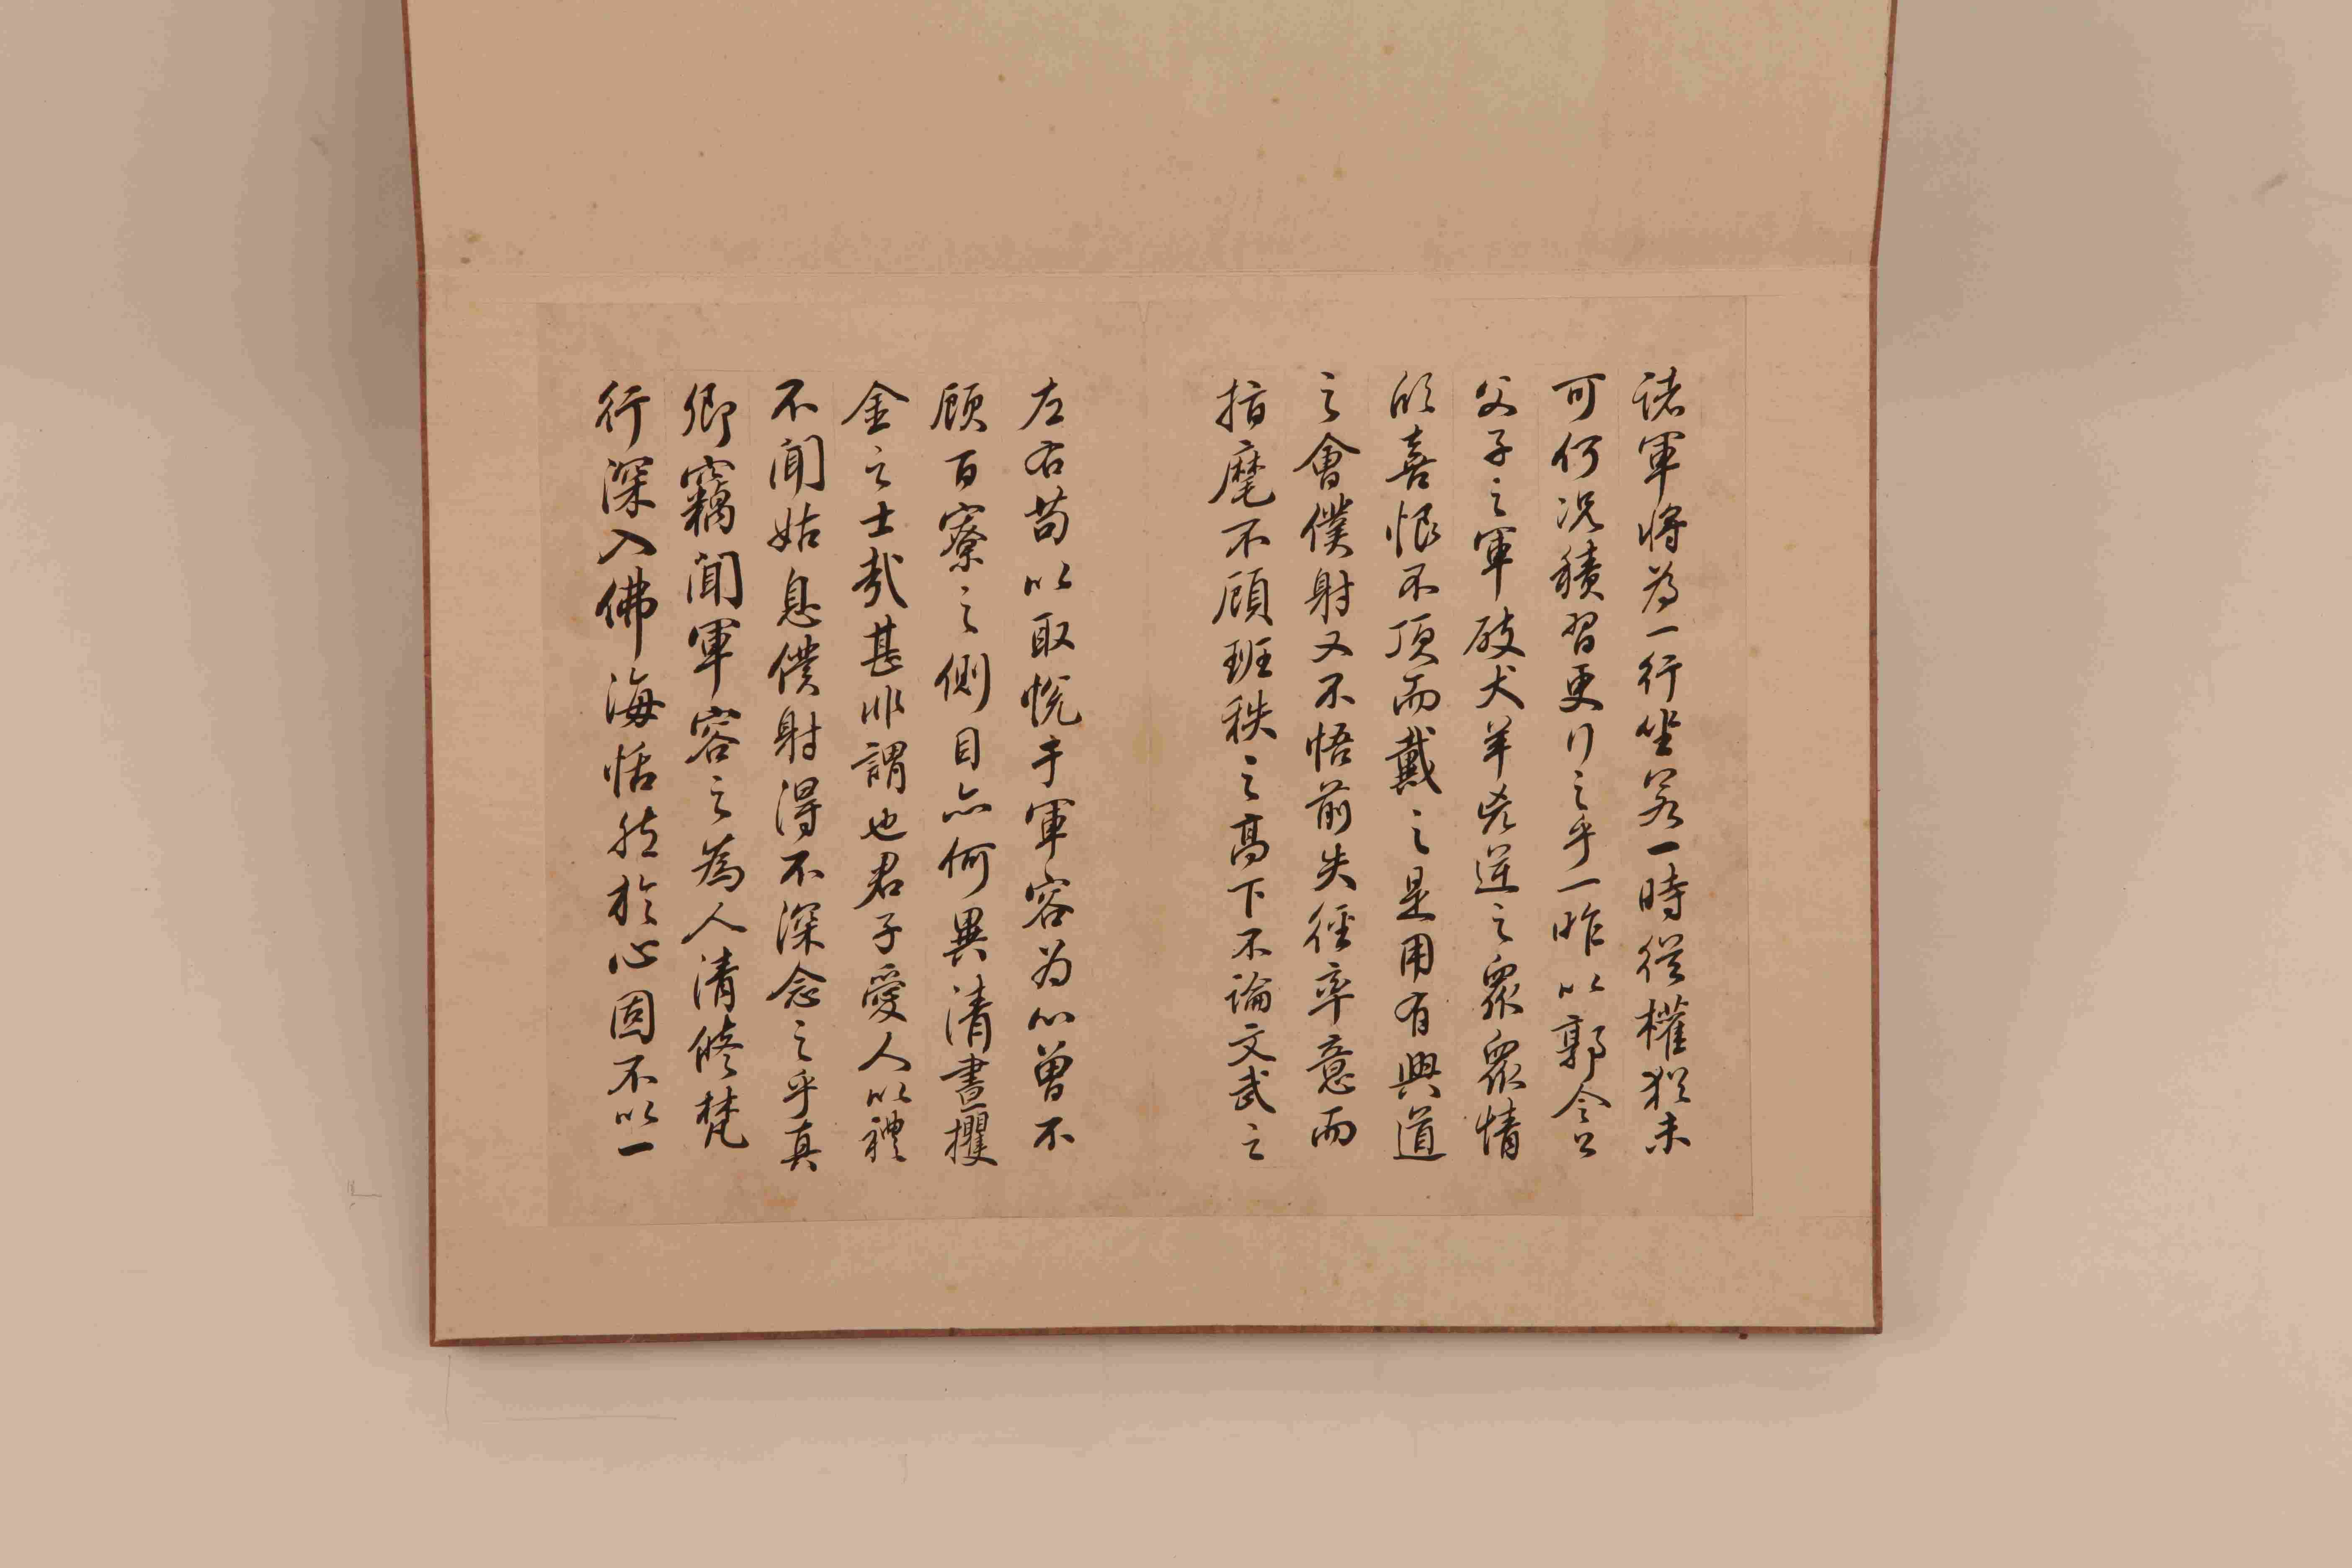 諸軍將為一行坐若一時從權猶未
可何況積習更行之乎一昨以郭令公
父子之軍破犬羊兇逆之眾眾情
欣喜恨不頂而戴之是用有興道
之會僕射又不悟前失徑率意而
指麾不顧班秩之高下不論文武之
左右苟以取悅于軍容为心曾不
顧百寮之側目亦何異清晝攫
金之士哉甚非謂也君子愛人以禮
不聞姑息僕射得不深念之乎真
卿竊聞軍容之為人清修梵
行深入佛海恬然於心固不以一